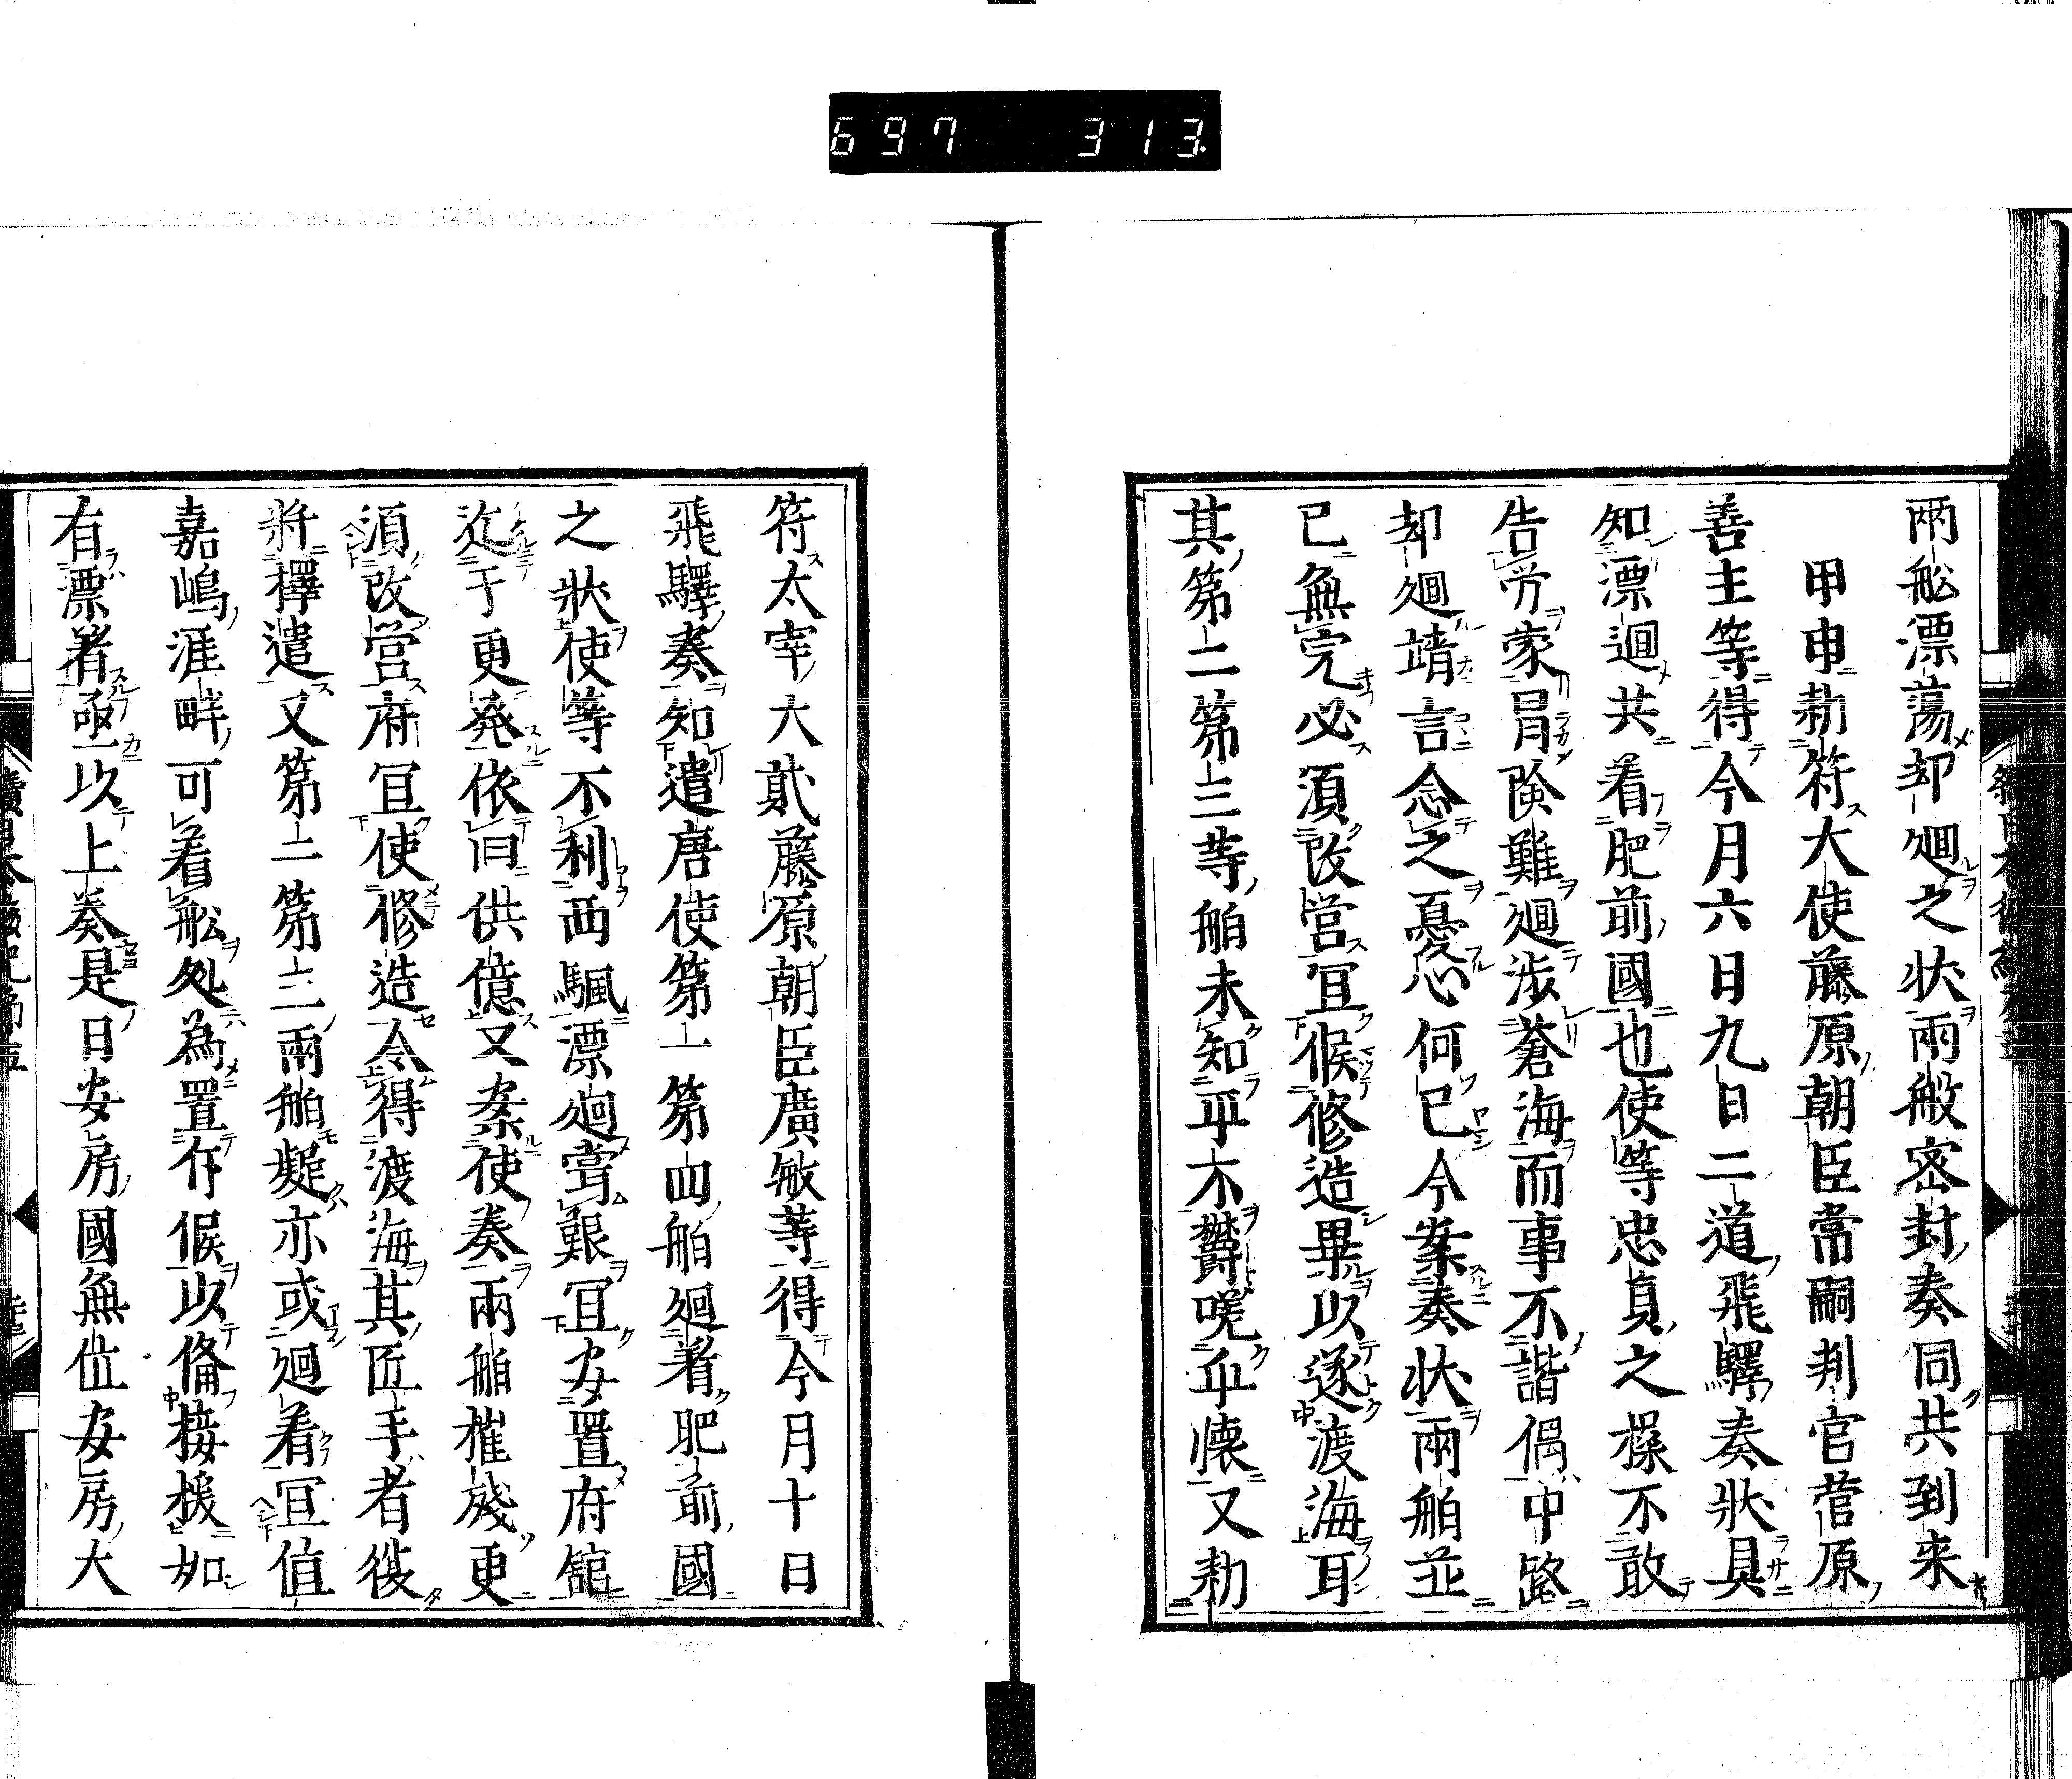 697 313
兩舩漂蕩却𢌞之状兩般密封奏同共到来
甲申勅符大使藤原朝臣常嗣判官菅原
善主等得今月六日九日二道飛驛奏狀具
知漂迴共着肥前國也使等忠貞之操不敢
告労家冐険難𢌞渉蒼海而事不諧偶中路
却𢌞靖言念之憂心何已今案奏状兩舶並
已無完必須改営冝候修造畢以遂渡海耳
其第二第三等舶未知平不欝咲丘懐又勅
符太宰大貳藤原朝臣廣敏等得今月十日
飛驛奏知遣唐使第一第四舶𢌞着肥前國
之狀使等不利西颿漂𢌞嘗艱冝安置府舘
迄于更發依旧供億又案使奏兩舶摧殘更
須改営府冝使修造令得渡海其匠手者復
將擇遣又第二第三兩舶疑亦或𢌞着冝值
嘉嶋涯畔可着舩処為置仵候以備接援如
有漂着亟以上奏是日安房國無位安房大